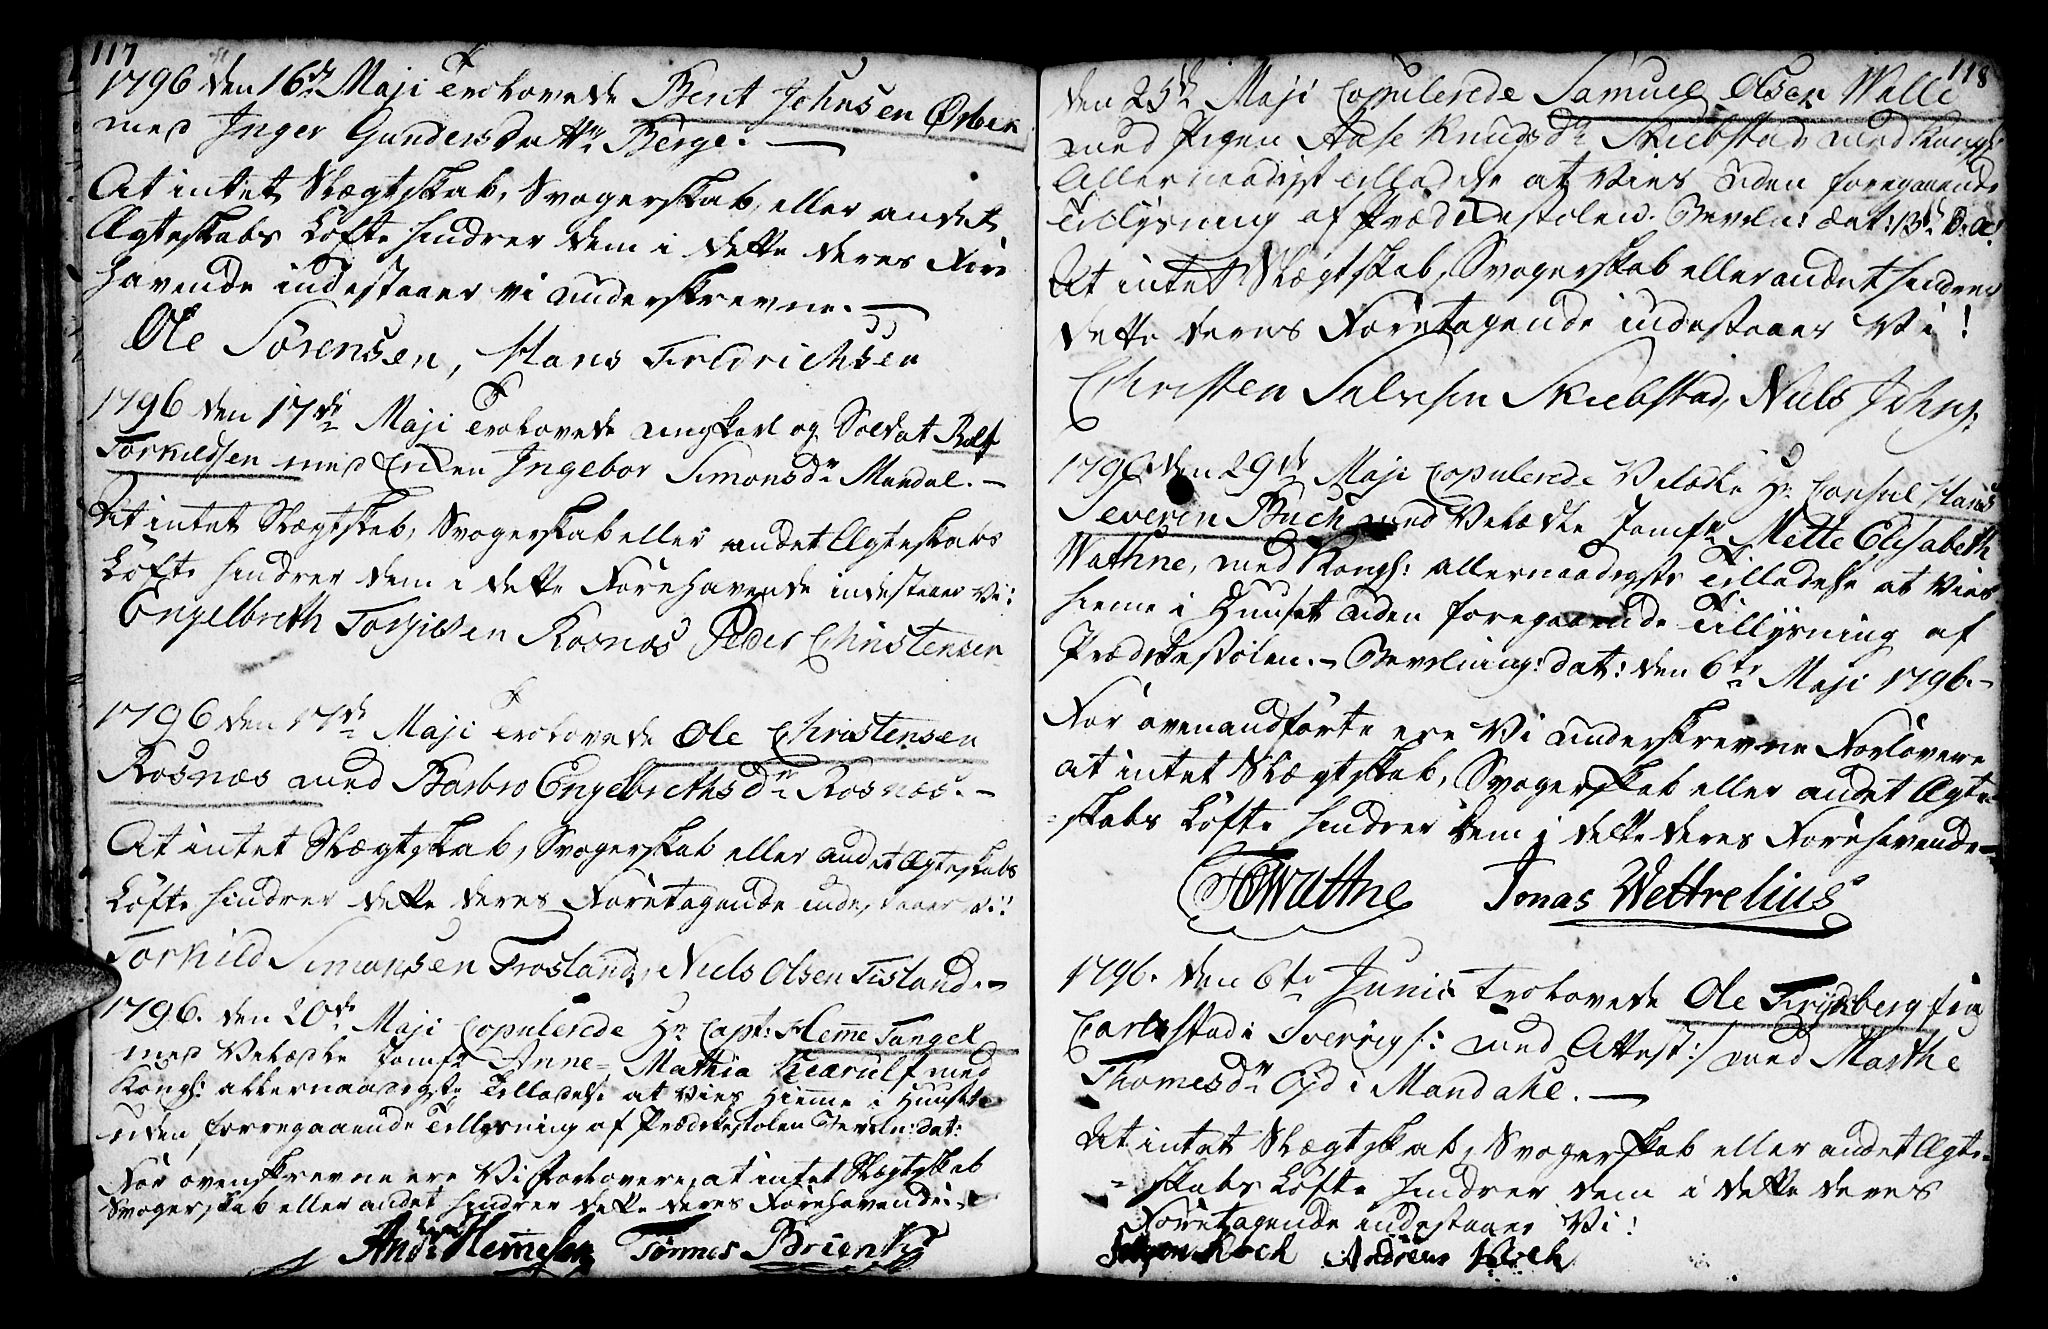 117
1796 den 16de Maji Trolovede Bent Johnsen
med Inger Gundersdatter Berge. —
At intet Slægtskab, Svogerskab, eller andet
Ægteskabs Løfte hindrer dem i dette deres Fore
havende indestaaer vi underskrevne. —
Ole Sørensen, Hans Fredrichsen
1796 den 17de Maji Trolovede ungkarl og Soldat Rolf
Torkildsen med Enken Ingebor Simonsdr Mandal. —
At intet Slægtskab, Svogerskab eller andet Ægteskabs
Løfte hindrer dem i dette Forehavende indestaaer Vi:
Engelbreth Torgiesen Rosnæs Peder Christensen
1796 den 17de Maji Trolovede Ole Christensen
Rosnæs med Barbro Engelbrethsdr Rosnæs. —
At intet Slægtskab, Svogerskab eller andet Ægteskabs
Løfte hindrer dette deres Foretagende indestaaer Vi!
Torkild Simonsen Frosland, Niels Olsen Tisland. —
1796. den 20de Maji Copulerede Hr Capt: Heme Tangel
med Velædle Jomfr Anne Mathia Kiærulf med
Kongl: allernaadigste Tilladelse at Vies Hiemme i Huuset
uden foregaaende Tillysning af Prædikestolen Beviln: dat:
For ovenskrevne ere Vi Forlovere, at intet Slægtskab
Svogerskab eller andet hindrer dette deres Forehavende. —
Hemesen Tønnes Brienk
118
den 25de Maji Copulerede Samuel Olsen Walle
med Pigen Aase Knudsdr Skiebstad med Kongl:
Allernaadigst Tilladelse at Vies uden foregaaende
Tillysning af Prædikestolen. Beviln: dat: 13de d. A:
At intet Slægtskab, Svogerskab eller andet hindrer
dette deres Foretagende indestaaer Vi!
Christen Salvesen Skiebstad, Niels Johns:
1796. den 29de Maji Copulerede Velædle Hr Consul Hans
Severin Buch med Velædle Jomfr Mette Elisabeth
Wathne, med Kongl: allernaadigste Tilladelse at Vies
hieme i Huuset uden foregaaende Tillysning af
Prædikestolen. — Bevilning: dat: den 6te Maji 1796. —
For ovenanførte ere Vi underskrevne Forlovere
at intet Slægtskab, Svogerskab eller andet Ægte-
=skabs Løfte hindrer dem i dette deres Forehavende —
Wattne Jonas Wettrelius
1796. den 6te Junii Trolovede Ole Frydsberg fra
Carlsstad i Sverrig /: med Attest :/ med Marthe
Thomesdr Øyd i Mandahl. —
At intet Slægtskab, Svogerskab eller andet Ægte-
=skabs Løfte hindrer dem i dette deres
Foretagende indestaaer Vi!
Koch Andreas Koch